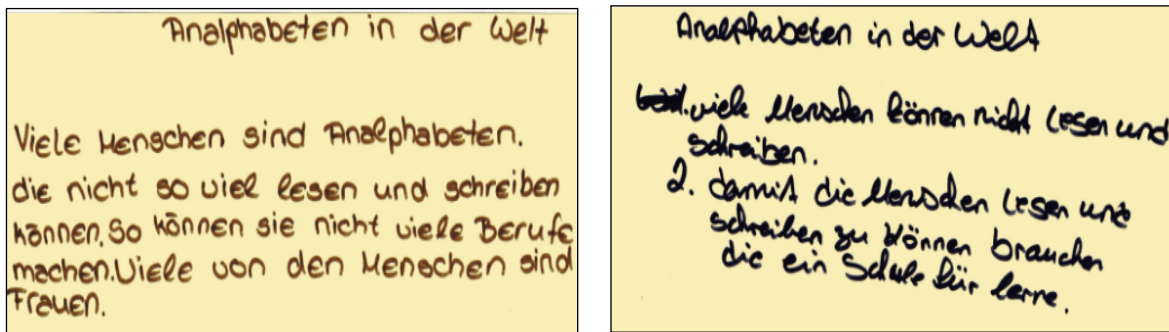 Analphabeten in der Welt
Viele Menschen sind Analphabeten.
die nicht so viel lesen und schreiben
können. So können sie nicht viele Berufe
machen. Viele von den Menschen sind
Frauen.
Analphabeten in der Welt
viele Menschen können nicht Lesen und
schreiben.
2. damit die Menschen Lesen und
schreiben zu können brauchen
die ein Schule für lerne.